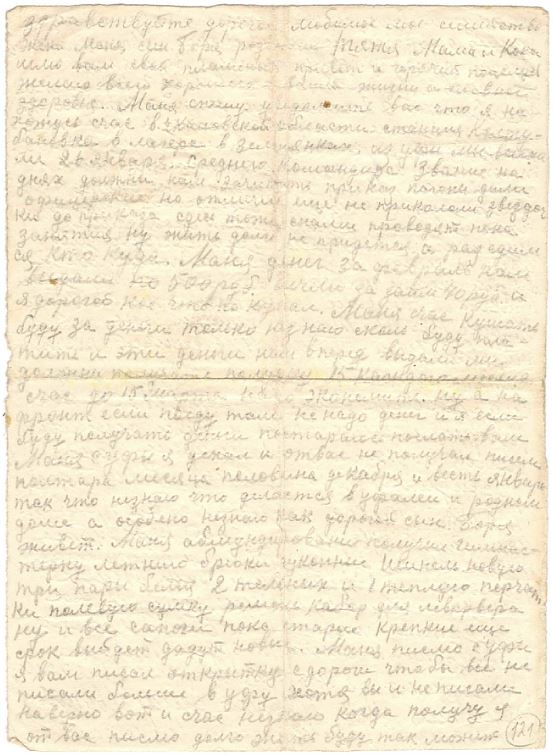 здравствуйте дорогие любимые мое семейство
жена Маня сын боря родители Тятя Мама и Кока
шлю вам свой пламенный привет и горячий поцелуй
желаю всего хорошего в вашей жизни а главное
здоровья. Маня спешу уведомить вас что я на
хожусь счас в чкаловской области станция
в лагере в землянках, из уфы мы
ли 26 января. Среднего командира звание на
днях должны нам зачитать приказ погоны дали
офицерские но отличий еще не прикололи звездоч
ки до приказа сдесь тоже с нами проводят пока
занятия ну жить долго не придется а разъедим
ся кто куда. Маня денег за февраль нам
выдали по 500 руб вычли за заем 70 руб и
я дорогой кое что по купал. Маня счас кушать
буду за деньги только незнаю сколь буду пла-
тить и эти деньги нам вперед выдали мы
должны получать получку 15 каждого месяца
счас до 15 марта надо экономить. ну а на
фронт если поеду там не надо денег и я если
буду получать деньги постараюсь посылать вам
Маня с уфы я уехал и от вас не получал писем
полтара месяца половина декабря и весть январь
так что незнаю что делается в уфалеи и родном
доме а особено незнаю как дорогой сын Боря
живет. Маня обмундирование получил гимнас-
терку летнию брюки суконные Шинель новую
три пары белья 2 тельных и 1 теплого перчат
ки полевую сумку ремень кабур для левальвера
ну и все сапоги пока старые крепкие еще
срок выйдет дадут новые. Маня писмо с уфы
я вам писал открытку с дороги чтобы вы не
писали больше в уфу хотя вы и не писали
наверно вот и счас незнаю когда получу я
от вас писмо долго жить буду так может
121